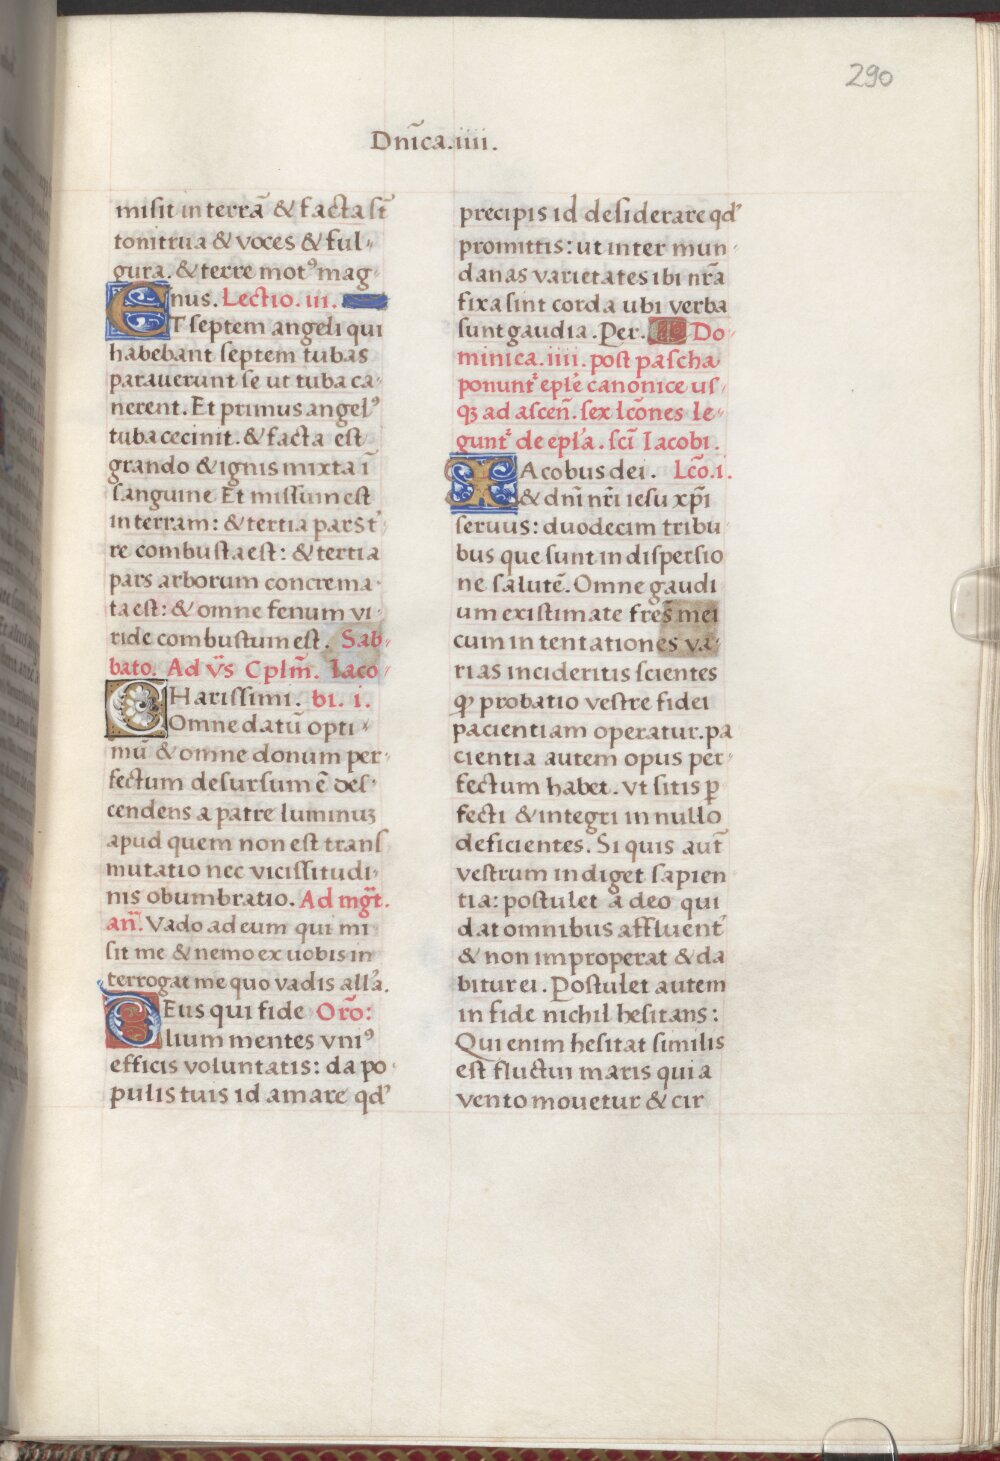 290
Dñica.iiii.
misit in terrã & facta st̃
tonitrua & voces & ful-
gura. & terre motꝰ mag-
nus. Lectio. iii.
ET septem angeli qui
habebant septem tubas
parauerunt se ut tuba ca-
nerent. Et primus angelꝰ
tuba cecinit. & facta est
grando & ignis mixta ĩ
sanguine Et missum est
in terram: & tertia pars t̃
re combusta est: & tertia
pars arborum concrema-
ta est: & omne fenum vi-
ride combustum est. Sab-
bato. Ad v̈s Cplm̃. Iaco-
CHarissimi. bi. i.
Omne datũ opti-
mũ & omne donum per-
fectum desursum ẽ des-
cendens a patre luminuꝫ
apud quem non est trans
mutatio nec vicissitudi-
nis obumbratio. Ad mgt̃.
añ. Vado ad eum qui mi
sit me & nemo ex uobis in
terrogat me quo vadis all'a.
DEus qui fide Orõ:
lium mentes vniꝰ
efficis voluntatis: da po-
pulis tuis id amare qd'
precipis id desiderare qd'
promittis: ut inter mun-
danas varietates ibi nr̃a
fixa sint corda ubi verba
sunt gaudia. Per. Do-
minica. iiii. post pascha
ponunt̃ eple canonice us-
qꝫ ad asceñ. sex lcões le-
gunt̃ de epl'a. scĩ Iacobi.
IAcobus dei. Lcõ.i.
& dnĩ nr̃i iesu xp̃i
seruus: duodecim tribu-
bus que sunt in dispersio
ne salutẽ. Omne gaudi
um existimate fres̃ mei
cum in tentationes va-
rias incideritis scientes
qꝙ probatio vestre fidei
pacientiam operatur. pa
cientia autem opus per-
fectum habet. vt sitis ꝑ
fecti & integri in nullo
deficientes. Si quis aut̃
vestrum indiget sapien
tia: postulet a deo qui
dat omnibus affluent̃
& non improperat & da
bitur ei. Postulet autem
in fide nichil hesitans:
Qui enim hesitat similis
est fluctui maris qui a
vento mouetur & cir